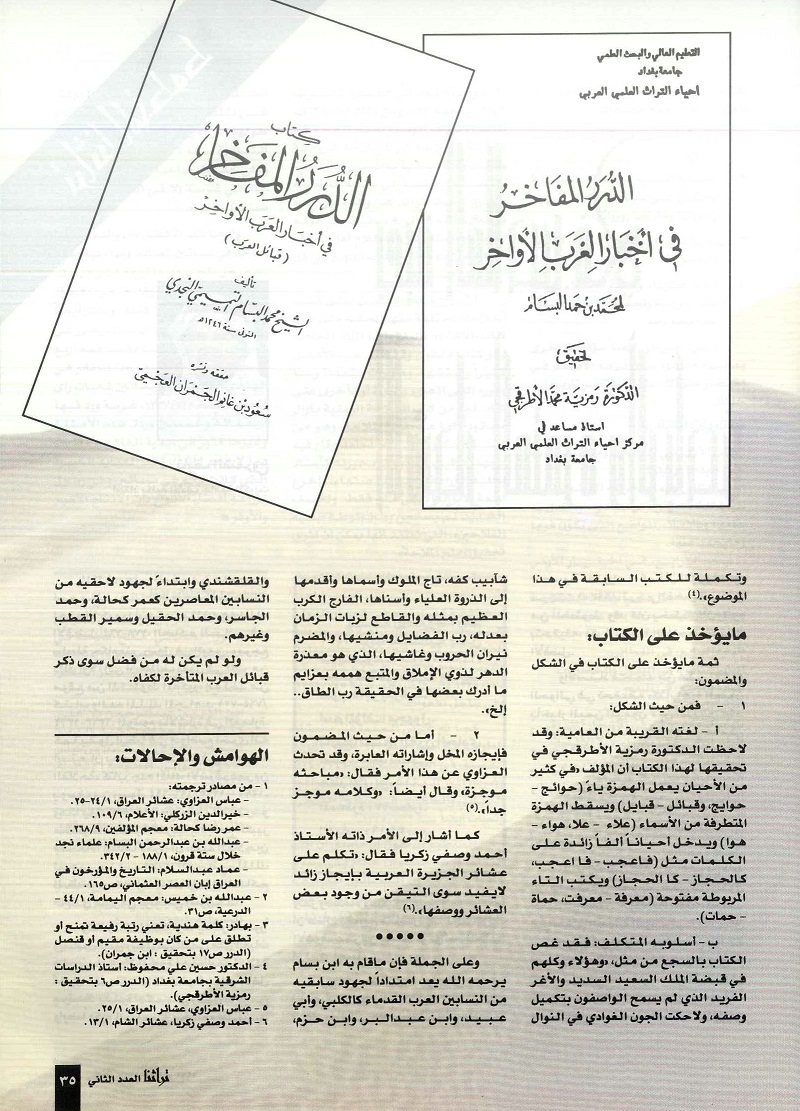 التعليم العالي والبحث العلمي
جامعة بغداد
احياء التراث العلمي العربي
الدرر المفاخر
في أخبار العرب الأواخر
لمحمد بن حمد البسام
تحقيق
الدكتورة رمزية محمد الأطرقجي
استاذ مساعد في
مركز احياء التراث العلمي العربي
جامعة بغداد
كتاب
الدرر المفاخر
في أخبار العرب الأواخر
(قبائل العرب)
تأليف
الشيخ محمد البسام التميمي النجدي
المتوفى سنة ١٢٤٦هـ
حققه ونشره
سعود بن غانم الجمران العجمي
وتكملة للكتب السابقة في هذا
الموضوع».(٤)
مايؤخذ على الكتاب:
ثمة مايؤخذ على الكتاب في الشكل
والمضمون:
١ - فمن حيث الشكل:
أ - لغته القريبة من العامية: وقد
لاحظت الدكتورة رمزية الأطرقجي في
تحقيقها لهذا الكتاب أن المؤلف «في كثير
من الأحيان يعمل الهمزة ياءً (حوائج -
حوايج، وقبائل - قبايل) ويسقط الهمزة
المتطرفة من الأسماء (علاء - علا، هواء -
هوا) ويدخل أحياناً ألفاً زائدة على
الكلمات مثل (فاعجب - فا اعجب،
كالحجاز - كا الحجاز) ويكتب التاء
المربوطة مفتوحة (معرفة - معرفت، حماة
- حمات).
ب - أسلوبه المتكلف: فقد غص
الكتاب بالسجع من مثل، «وهؤلاء وكلهم
في قبضة الملك السعيد السديد والأغر
الفريد الذي لم يسمح الواصفون بتكميل
وصفه، ولاحكت الجون الغوادي في النوال
شآبيب كفه، تاج الملوك وأسماها وأقدمها
إلى الذروة العلياء وأسناها، الفارج الكرب
العظيم بمثله والقاطع لزبات الزمان
بعدله، رب الفضايل ومنشيها، والمضرم
نيران الحروب وغاشيها، الذي هو معذرة
الدهر لذوي الإملاق والمتبع هممه بعزايم
ما أدرك بعضها في الحقيقة رب الطاق..
إلخ».
٢ - أما من حيث المضمون
فإيجازه المخل وإشاراته العابرة، وقد تحدث
العزاوي عن هذا الأمر فقال: «مباحثه
موجزة، وقال أيضاً: «وكلامه موجز
جداً».(٥)
كما أشار إلى الأمر ذاته الأستاذ
أحمد وصفي زكريا فقال: «تكلم على
عشائر الجزيرة العربية بإيجاز زائد
لايفيد سوى التيقن من وجود بعض
العشائر ووصفها».(٦)
•••••
وعلى الجملة فإن ماقام به ابن بسام
يرحمه الله يعد امتداداً لجهود سابقيه
من النسابين العرب القدماء كالكلبي، وأبي
عبيد، وابن عبدالبر، وابن حزم،
والقلقشندي وابتداءً لجهود لاحقيه من
النسابين المعاصرين كعمر كحالة، وحمد
الجاسر، وحمد الحقيل وسمير القطب
وغيرهم.
ولو لم يكن له من فضل سوى ذكر
قبائل العرب المتأخرة لكفاه.
الهوامش والإحالات:
١ - من مصادر ترجمته:
- عباس العزاوي: عشائر العراق، ٢٤/١-٢٥.
- خيرالدين الزركلي: الأعلام، ١٠٩/٦.
- عمر رضا كحالة: معجم المؤلفين، ٢٦٨/٩.
- عبدالله بن عبدالرحمن البسام: علماء نجد
خلال ستة قرون، ١٨٨/١ - ٣٤٢/٢.
- عماد عبدالسلام: التاريخ والمؤرخون في
العراق إبان العصر العثماني، ص١٦٥.
٢ - عبدالله بن خميس: معجم اليمامة، ٤٤/١ -
الدرعية، ص٣١.
٣ - بهادر: كلمة هندية، تعني رتبة رفيعة تمنح أو
تطلق على من كان بوظيفة مقيم أو قنصل
(الدرر ص١٧ بتحقيق : ابن جمران).
٤ - الدكتور حسين علي محفوظ: أستاذ الدراسات
الشرقية بجامعة بغداد (الدرر ص٦ بتحقيق :
رمزية الأطرقجي).
٥ - عباس العزاوي، عشائر العراق، ٢٥/١.
٦ - أحمد وصفي زكريا، عشائر الشام، ١٣/١.
تراثنا العدد الثاني ٣٥